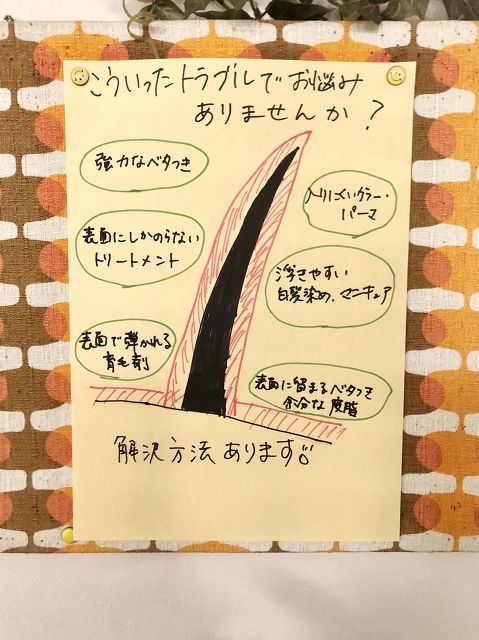 こういったトラブルでお悩み
ありませんか?
強力なベタつき
入りにくいカラー・
パーマ
表面にしかのらない
トリートメント
浮きやすい
白髪染め、マニキュア
表面で弾かれる
育毛剤
表面に留まるベタつき
余分な皮脂
解決方法あります